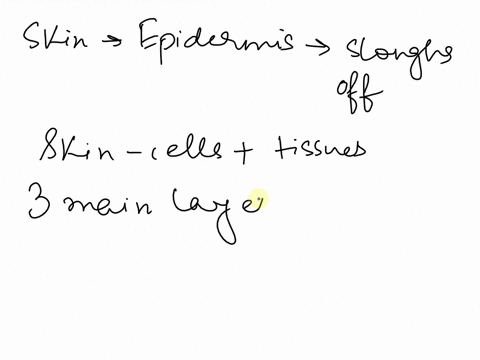 Skin → Epidermis → sloughs
off
Skin - cells + tissues
3 main laye